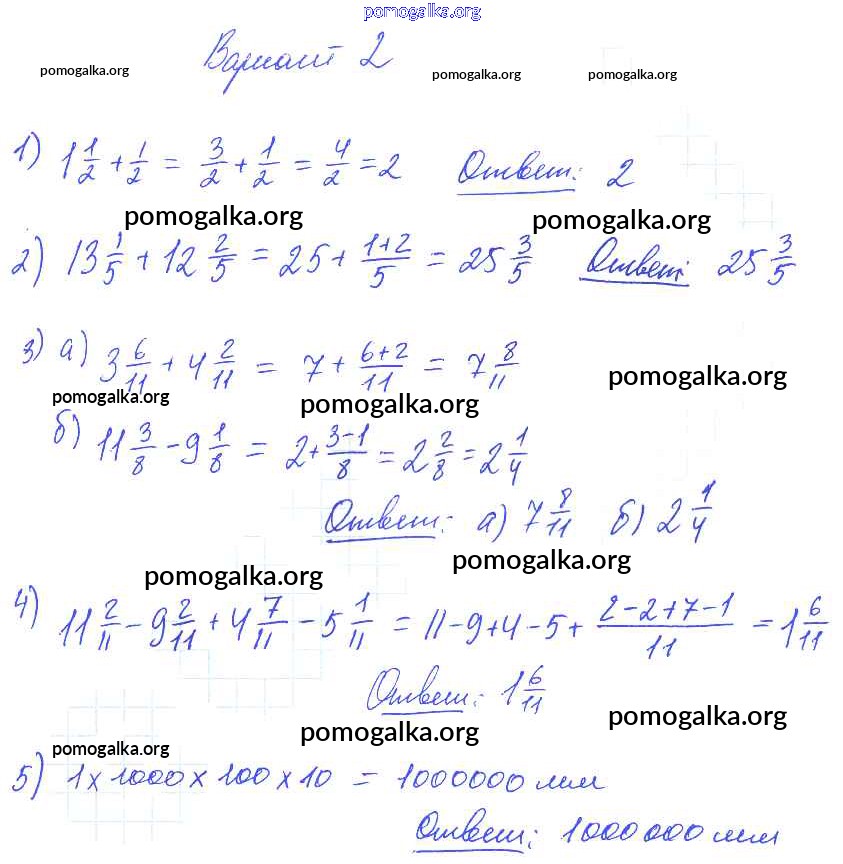 pomogalka.org
Вариант 2
pomogalka.org pomogalka.org pomogalka.org
1) 1 1/2 + 1/2 = 3/2 + 1/2 = 4/2 = 2 Ответ: 2
pomogalka.org pomogalka.org
2) 13 1/5 + 12 2/5 = 25 + (1+2)/5 = 25 3/5 Ответ: 25 3/5
3) а) 3 6/11 + 4 2/11 = 7 + (6+2)/11 = 7 8/11
pomogalka.org pomogalka.org pomogalka.org
б) 11 3/8 - 9 1/8 = 2 + (3-1)/8 = 2 2/8 = 2 1/4
Ответ: а) 7 8/11 б) 2 1/4
pomogalka.org pomogalka.org
4) 11 2/11 - 9 2/11 + 4 7/11 - 5 1/11 = 11-9+4-5+ (2-2+7-1)/11 = 1 6/11
Ответ: 1 6/11
pomogalka.org pomogalka.org pomogalka.org
5) 1 x 1000 x 100 x 10 = 1000000 мм
Ответ: 1000000 мм